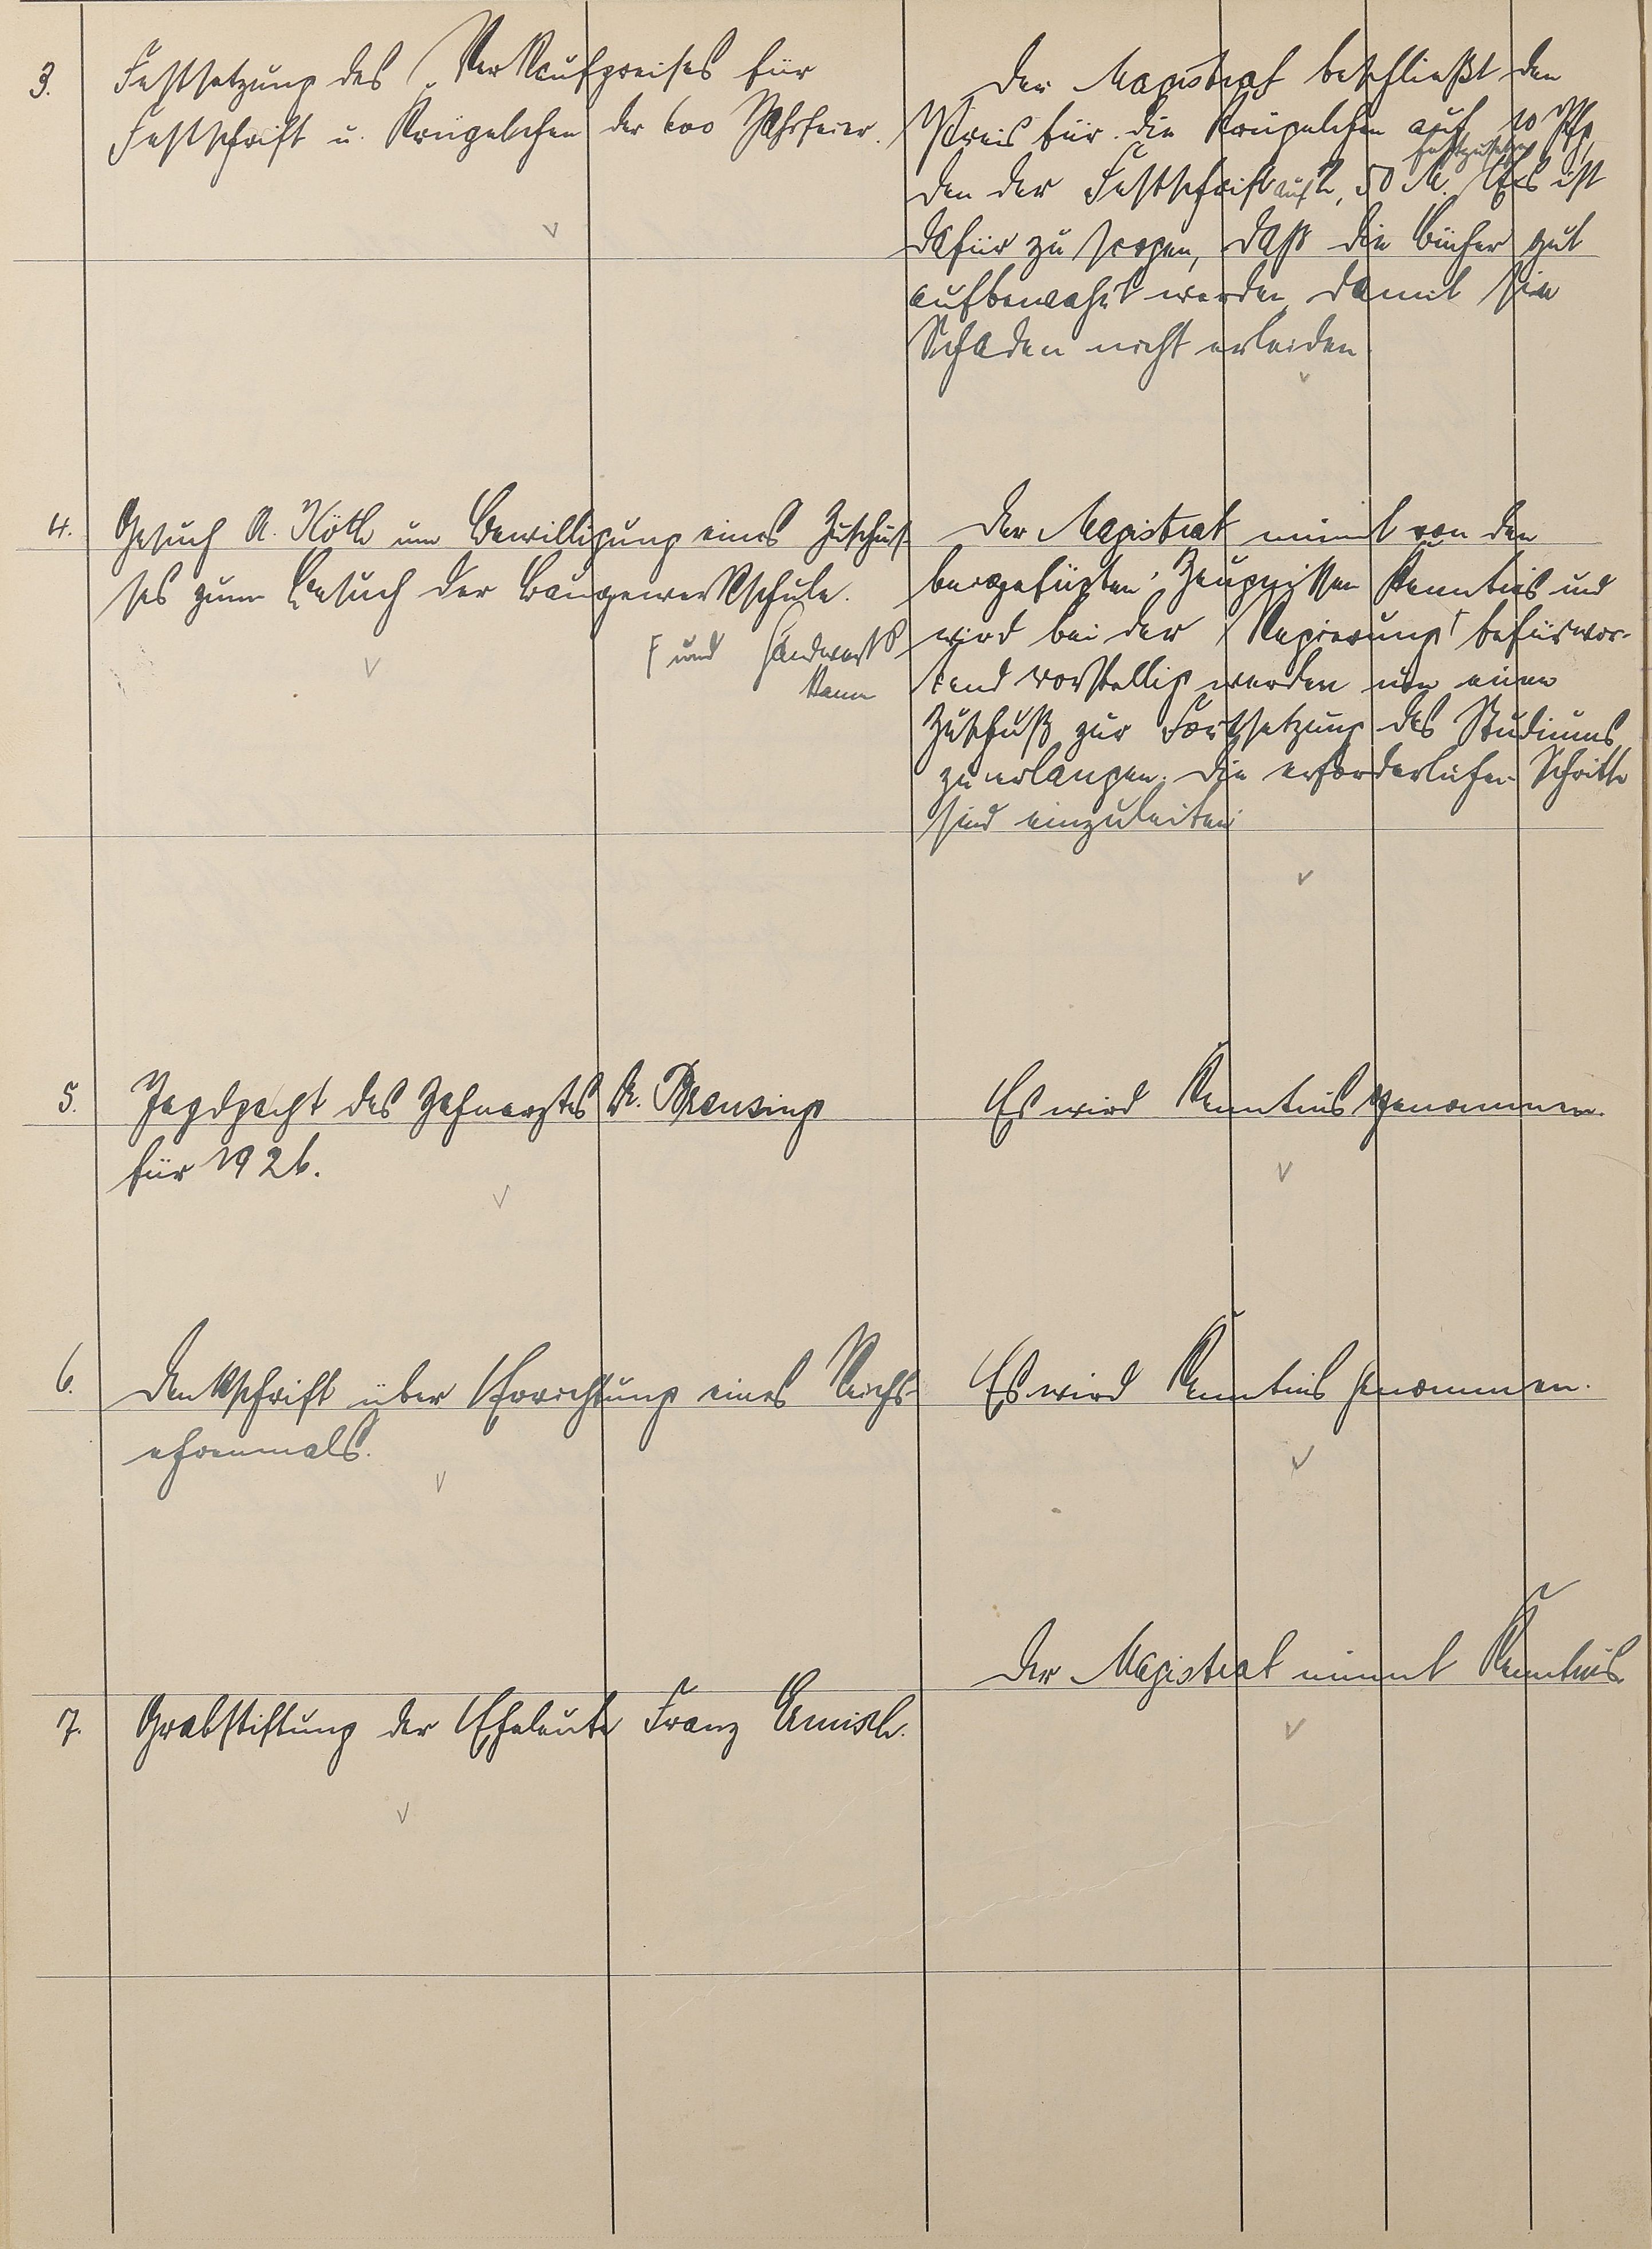 3.
Festsetzung des Verkaufpreises für
Festschrift u. Krügelchen der 600 Jahrfeier.
Der Magistrat beschließt den
Preis für die Krügelchen auf 10 Pfg,
festzusetzen
den der Festschrift auf 1,50 M. Es ist
dafür zu sorgen, daß die Bücher gut
aufbewahrt werden damit sie
Schaden nicht erleiden
4.
Gesuch A. Köth um Bewilligung eines Zuschus-
ses zum Besuch der Baugewerkschule.
Der Magistrat nimmt von den
beigefügten Zeugnissen Kenntnis und
wird bei der Regierung befürwor-
und Handwerks
kam
tend vorstellig werden um einen
Zuschuß zur Fortsetzung des Studiums
zu erlangen. Die erforderlichen Schritte
sind einzuleiten
5.
Jagdpacht des Zahnarztes Dr. Brensing
für 1926.
Es wird Kenntnis genommen.
6.
Denkschrift über Errichtung eines Reichs-
ehrenmals.
Es wird Kenntnis genommen.
7.
Grabstiftung der Eheleute Franz
Der Magistrat nimmt Kenntnis